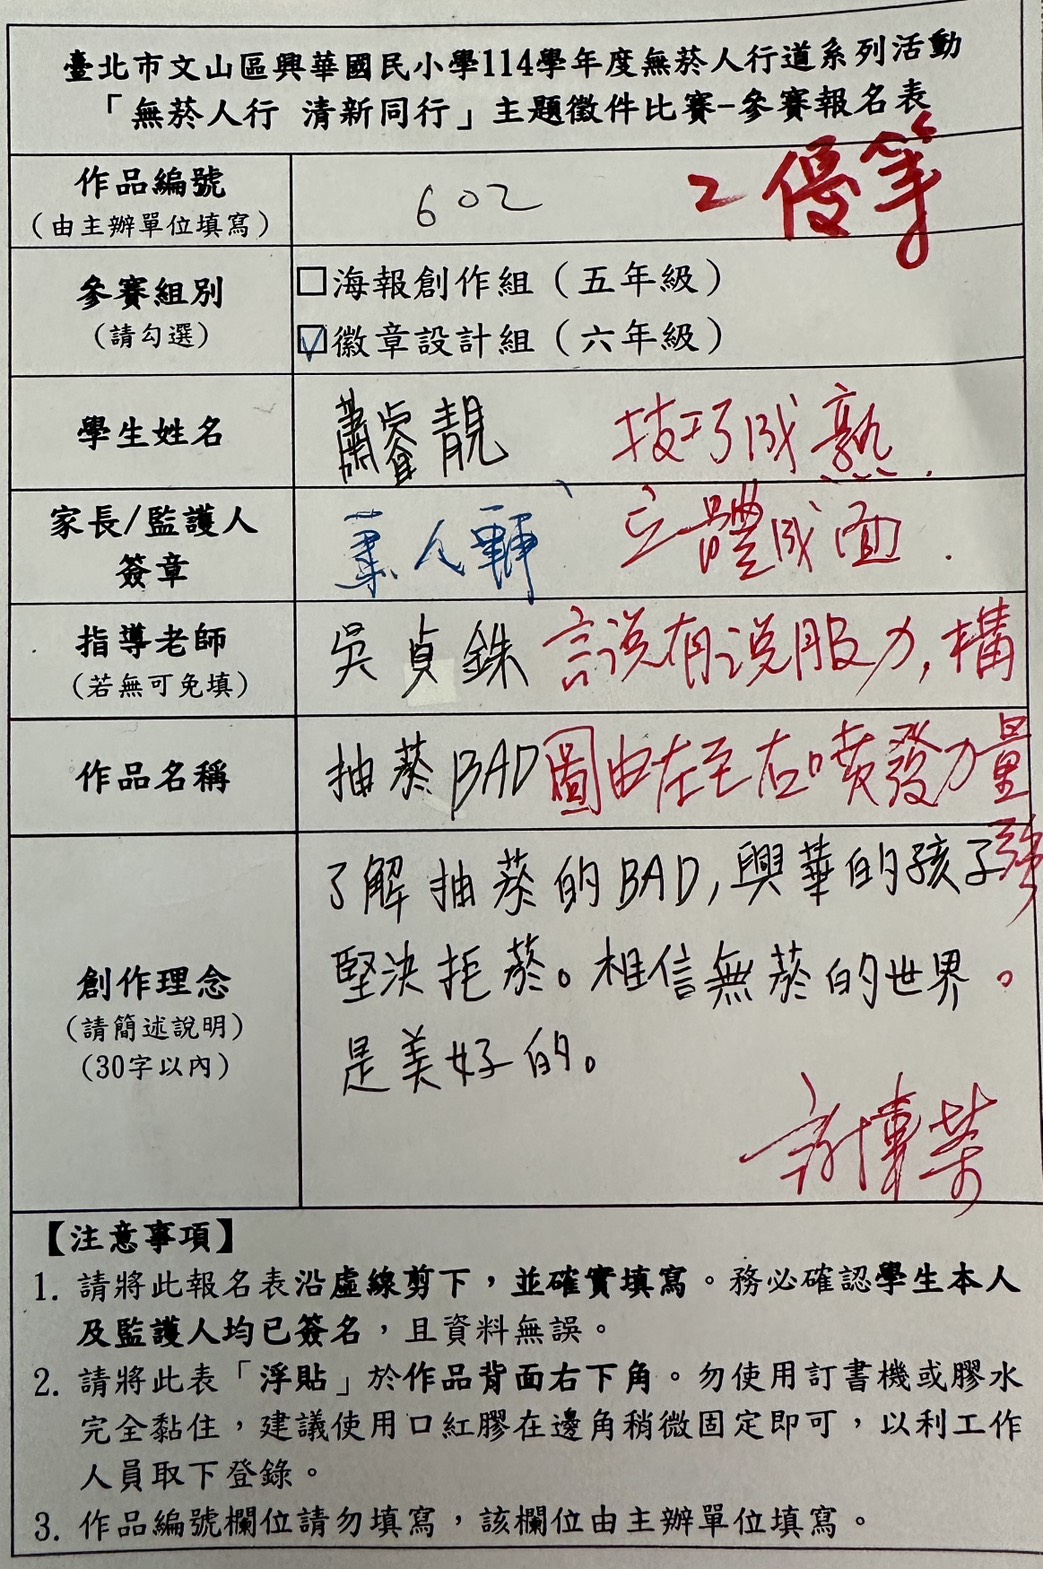 臺北市文山區興華國民小學114學年度無菸人行道系列活動
「無菸人行 清新同行」主題徵件比賽-參賽報名表
作品編號
（由主辦單位填寫）
602
2 優等
參賽組別
（請勾選）
□海報創作組（五年級）
☑徽章設計組（六年級）
學生姓名
蕭睿靚
技巧成熟.
家長/監護人
簽章
立體成面.
指導老師
（若無可免填）
吳貞銖
言說有說服力,構
作品名稱
抽菸BAD
圖由左至右噴發力量
強。
創作理念
（請簡述說明）
（30字以內）
了解抽菸的BAD,興華的孩子
堅決拒菸。相信無菸的世界
是美好的。
【注意事項】
1. 請將此報名表沿虛線剪下，並確實填寫。務必確認學生本人
及監護人均已簽名，且資料無誤。
2. 請將此表「浮貼」於作品背面右下角。勿使用訂書機或膠水
完全黏住，建議使用口紅膠在邊角稍微固定即可，以利工作
人員取下登錄。
3. 作品編號欄位請勿填寫，該欄位由主辦單位填寫。